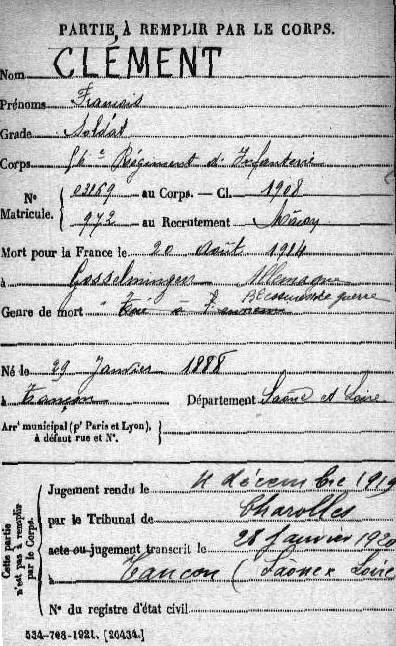 PARTIE À REMPLIR PAR LE CORPS.
Nom CLÉMENT
Prénoms François
Grade Soldat
Corps 56e Régiment d'Infanterie
N° Matricule. { 03169 au Corps. — Cl. 1908
973 au Recrutement Mâcon
Mort pour la France le 20 Août 1914
à Gosselmingen Allemagne
Genre de mort Tué à l'ennemi Blessures de guerre
Né le 29 Janvier 1888
à Tancon Département Saône et Loire
Arrt municipal (pr Paris et Lyon), à défaut rue et N°. }
Cette partie n'est pas à remplir par le Corps.
Jugement rendu le 4 décembre 1919
par le Tribunal de Charolles
acte ou jugement transcrit le 28 janvier 1920
à Tancon (Saone & Loire
N° du registre d'état civil
534-708-1921. [26434.]